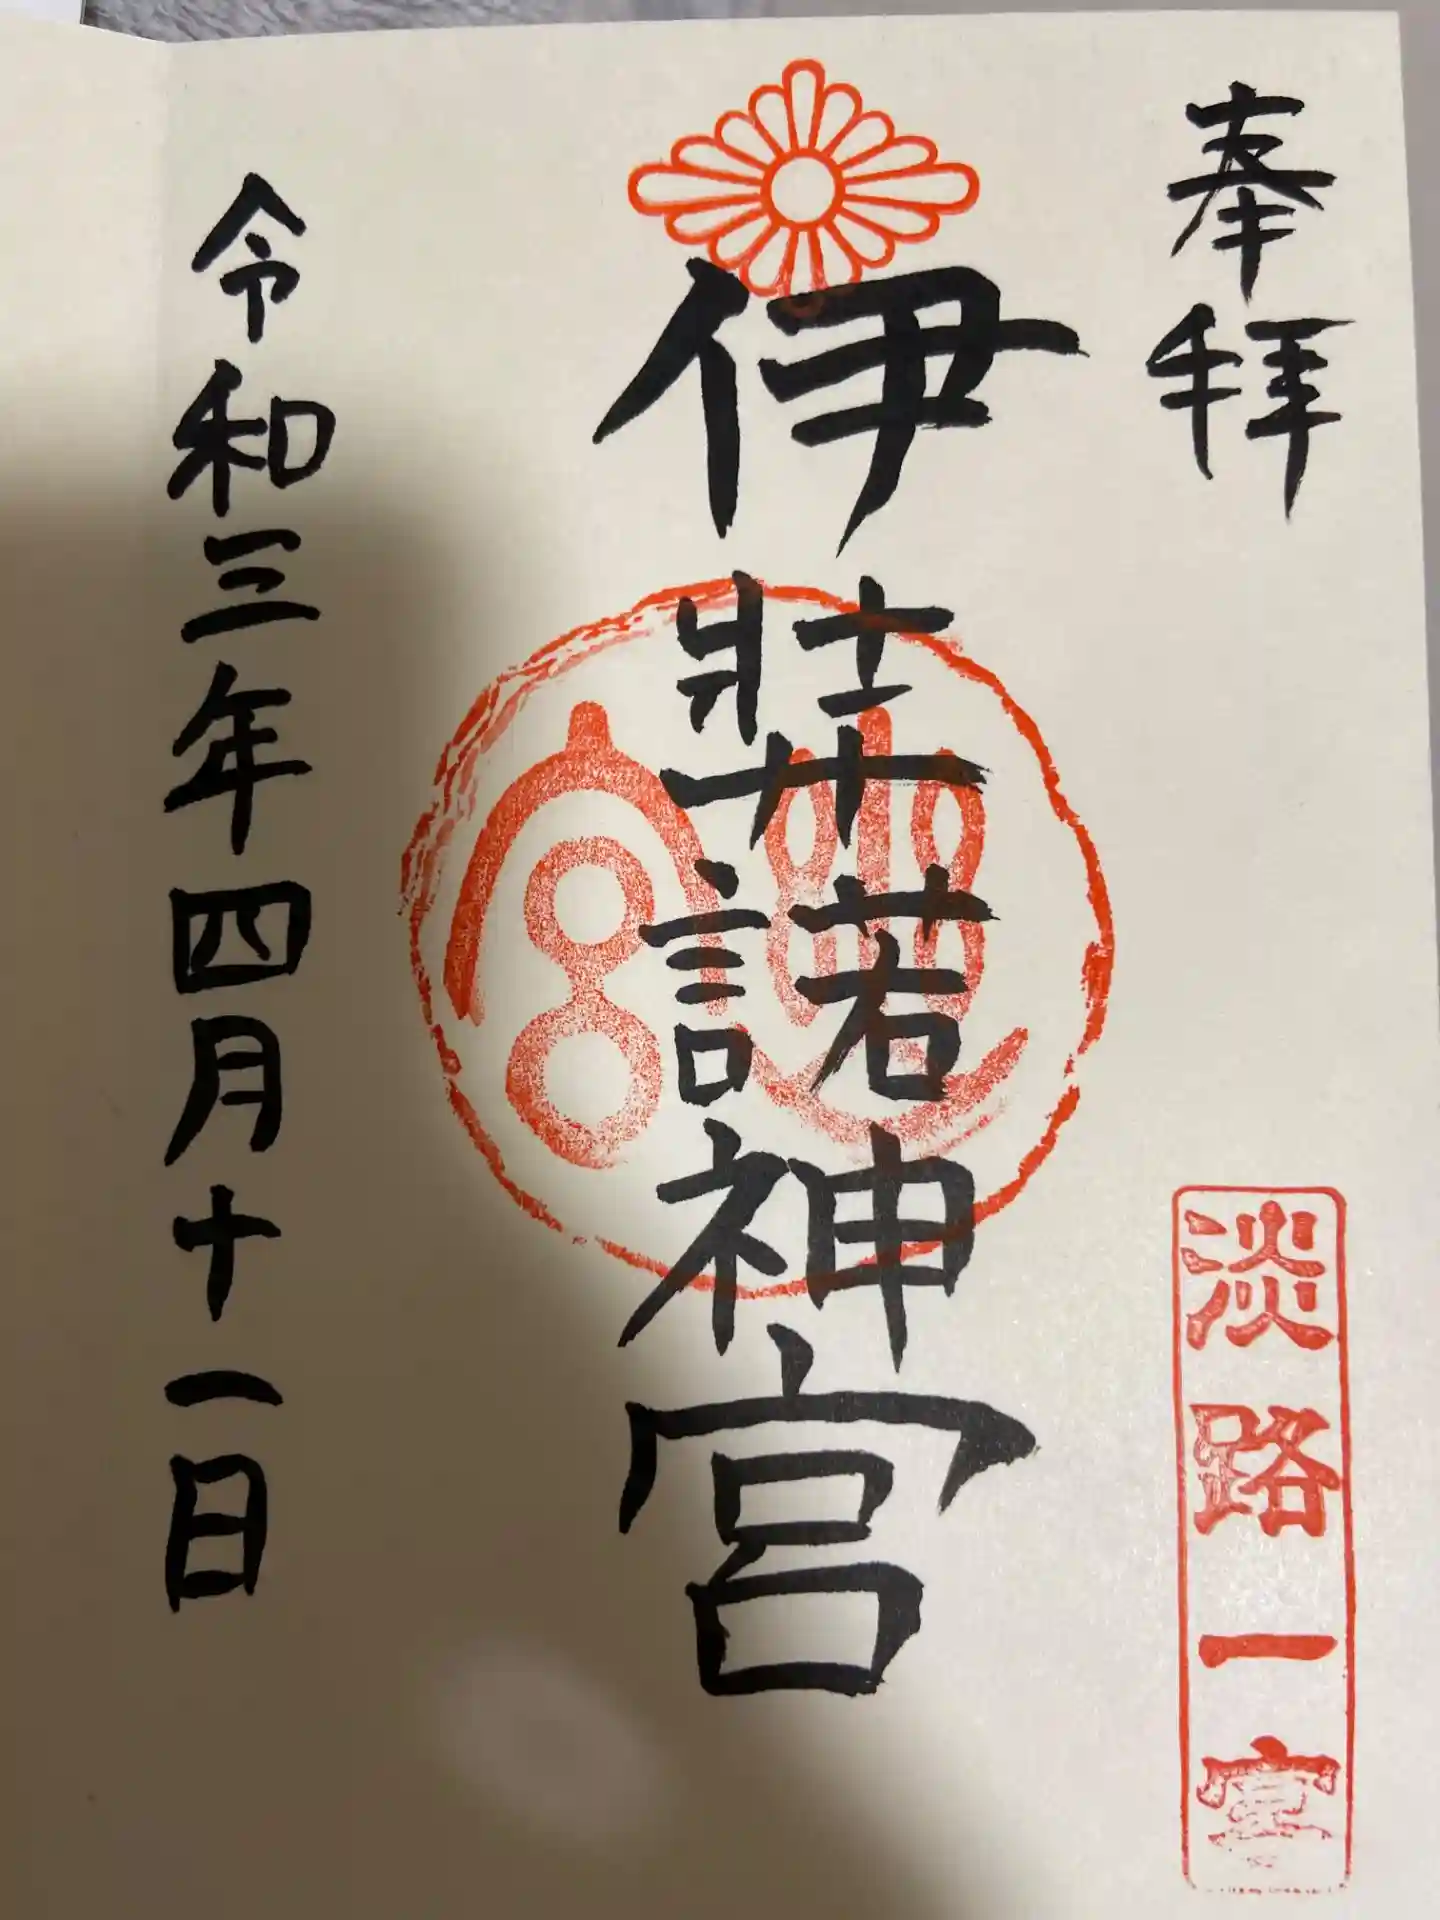 奉拝
淡路一宮
伊弉諾神宮
幽宮
令和三年四月十一日